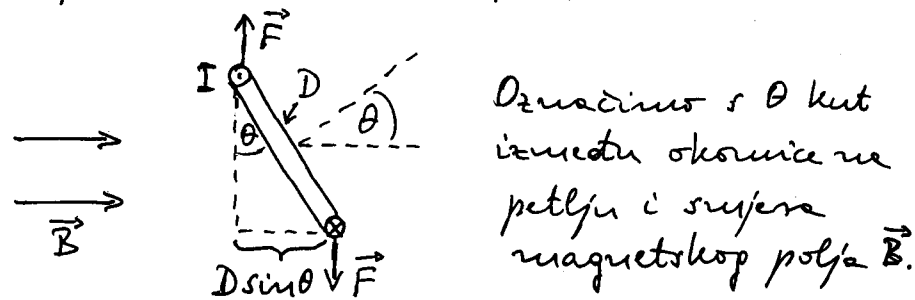 F
I
D
θ
θ
B
D sinθ
F
Označimo s θ kut
između okomice na
petlju i smjera
magnetskog polja B.